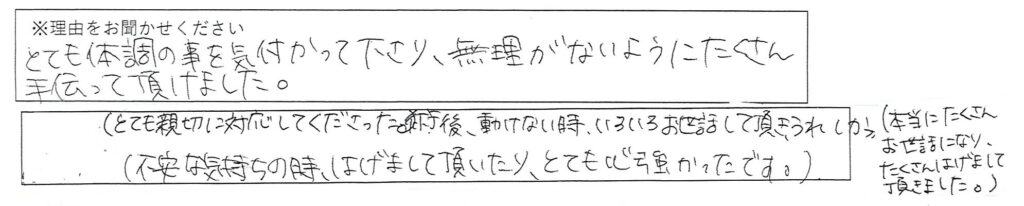 ※理由をお聞かせください
とても体調の事を気付かって下さり、無理がないようにたくさん
手伝って頂けました。
(とても親切に対応してくださった 術後、動けない時、いろいろお世話して頂きうれしかっ
(不安な気持ちの時、はげまして頂いたり、とても心強かったです。)
(本当にたくさん
お世話になり、
たくさんはげまして
頂きました。)